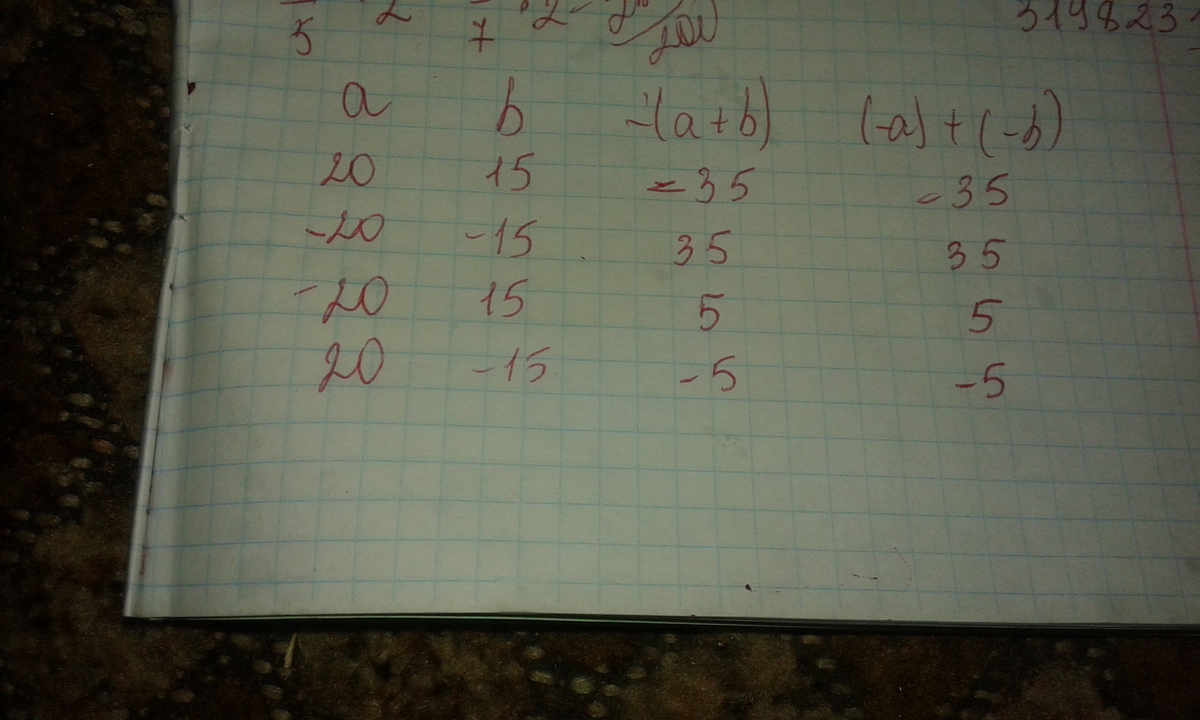 5 2 7 · 2 319823
a b -(a+b) (-a)+(-b)
20 15 -35 -35
-20 -15 35 35
-20 15 5 5
20 -15 -5 -5